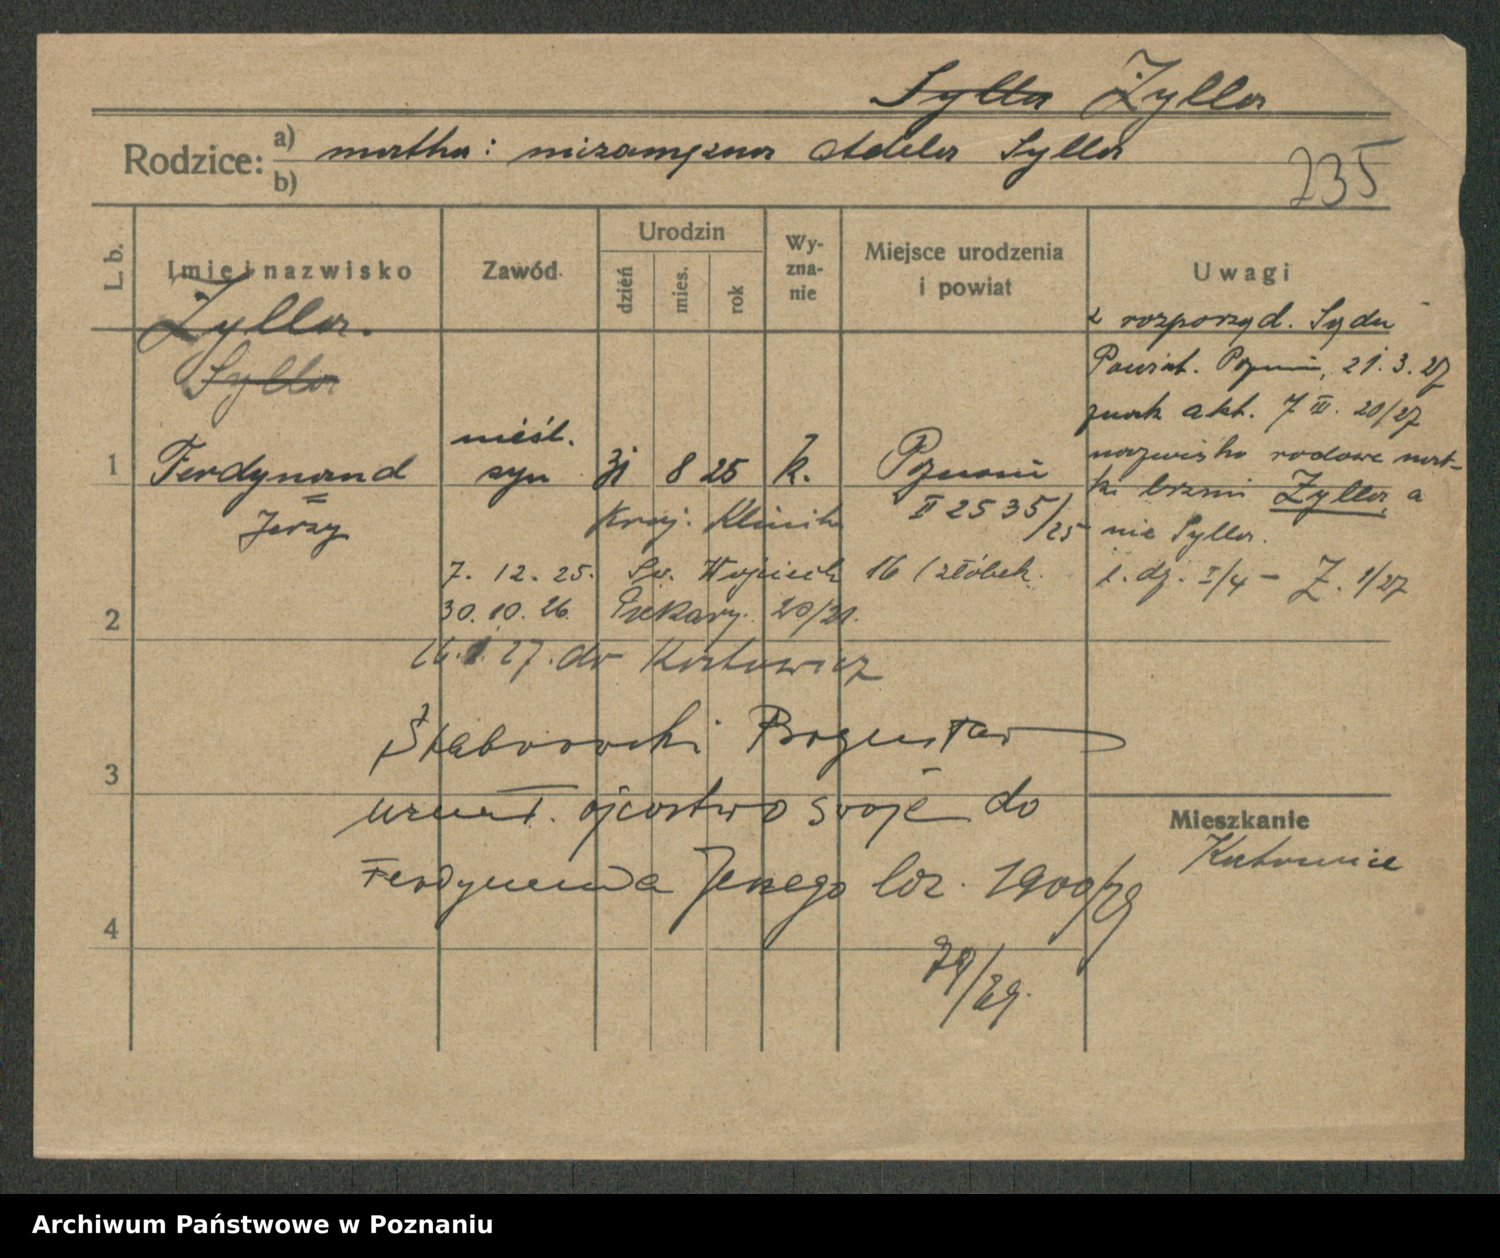 Sylla Żylla
Rodzice: a) matka: niezamężna Adela Sylla
b)
235
L. b.
Imię i nazwisko
Zawód
Urodzin
dzień
mies.
rok
Wy-
zna-
nie
Miejsce urodzenia
i powiat
Uwagi
Żylla.
Sylla
z rozporząd. Sądu
Powiat. Poznań, 21.3.27
znak akt. 7 III. 20/27
nazwisko rodowe mat-
ki brzmi Żylla, a
nie Sylla.
l. dz. I/4 - Z. 1/27
1
Ferdynand
Jerzy
nieśl.
syn
31 8 25 k.
Poznań
II 2535/25
Kraj. Klinika
7. 12. 25. Św. Wojciech 16 (żłóbek.
30. 10. 26. Piekary. 20/21.
2
16. 1. 27. do Katowic
3
Bogusław
uznał. ojcostwo swoje do
Ferdynanda Jerzego 1900/29
4
79/29.
Mieszkanie
Katowice
Archiwum Państwowe w Poznaniu